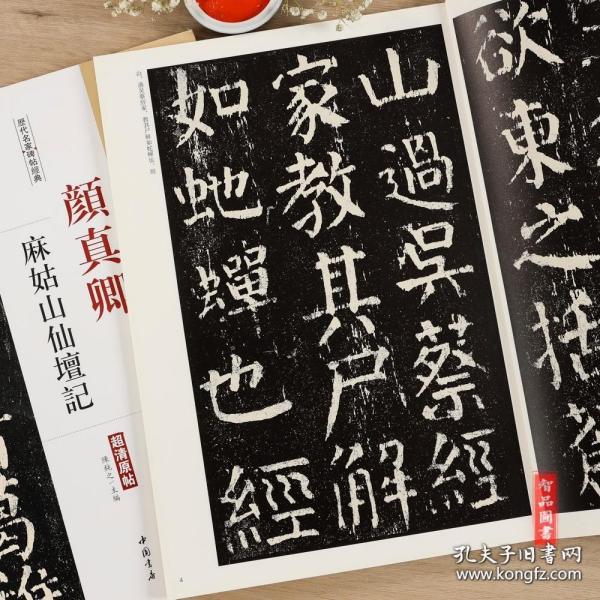 歷代名家碑帖經典
顏真卿
麻姑山仙壇記
超清原帖
陳鈍之 主編
中国書店
欲東之括
山過吳蔡經
家教其尸解
如虵蟬也經
4
智品圖書
孔夫子旧书网
www.kongfz.com